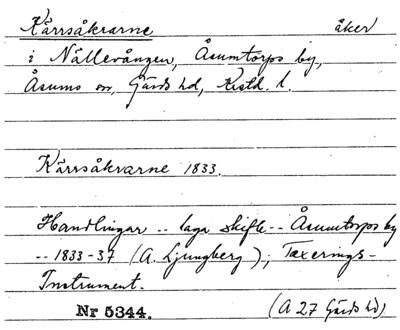 Kärrsåkrarne åker
i Nällevången, Åsumtorps by,
Åsums sn, Gärds hd, Kristd. l.
Kärrsåkrarne 1833.
Handlingar .. laga skifte .. Åsumtorps by
.. 1833-37 (A. Ljungberg); Taxerings-
Instrument.
Nr 5344. (A 27 Gärds hd)